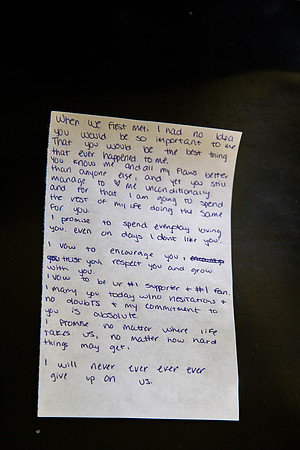 When we first met, I had no idea
you would be so important to me
That you would be the best thing
that ever happened to me.
You know me and all my flaws better
than anyone else, and yet you still
manage to ♥ me unconditionally
and for that I am going to spend
the rest of my life doing the same
for you.
I promise to spend everyday loving
you, even on days I dont like you.
I vow to encourage you,
trust you, respect you and grow
with you.
I vow to be ur #1 supporter + #1 fan.
I marry you today w/no hesitations +
no doubts + my commitment to
you is absolute.
I promise no matter where life
takes us, no matter how hard
things may get.
I will never ever ever ever
give up on us.